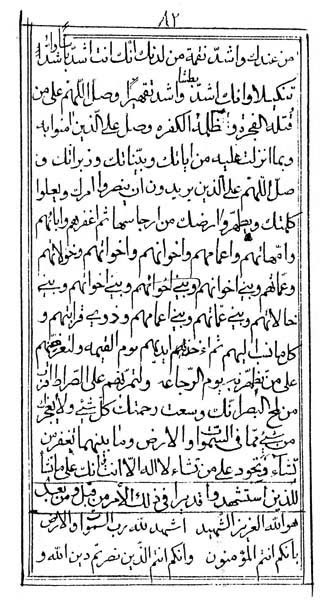 ٨٢
من عندك واشد نقمة من لدنك انك انت اشد باسا
تنكيلا وانك اشد بطشا واشد تقهيرا وصل اللهم على من
قتله الفجرة و ظلمة الكفرة وصل على الذين امنوا به
وبما انزلت عليه من اياتك وبيناتك و
صل اللهم على الذين يريدون ان ينصروا امرك ويعلوا
كلمتك ويطهروا ارضك من ارجاسها ثم اغفرهم وابائهم
وامهاتهم واعمامهم واخوانهم واخواتهم وخولانهم
وعماتهم وبني اخوانهم وبني اخواتهم وبني
خالاتهم وبني عماتهم وبني اعمامهم وذوي قرابتهم و
كل ما نسب اليهم ثم خذ ايديهم يوم القيمة
على من يوم الرجاعه على الصراط
من وسعت رحمتك كل شيء ولا يعجزك
من شيء عما في السموات والارض وما بينهما تغفر من
تشاء وتجود على من تشاء لا اله الا انت انك على ما تشاء
للذين استشهد واقدر في ذلك الامر من قبل ومن بعد
هو الله العزيز الشهيد اشهد لله رب السموات والارض
بانكم انتم المؤمنون وانكم انتم الذين نصرتم دين الله و